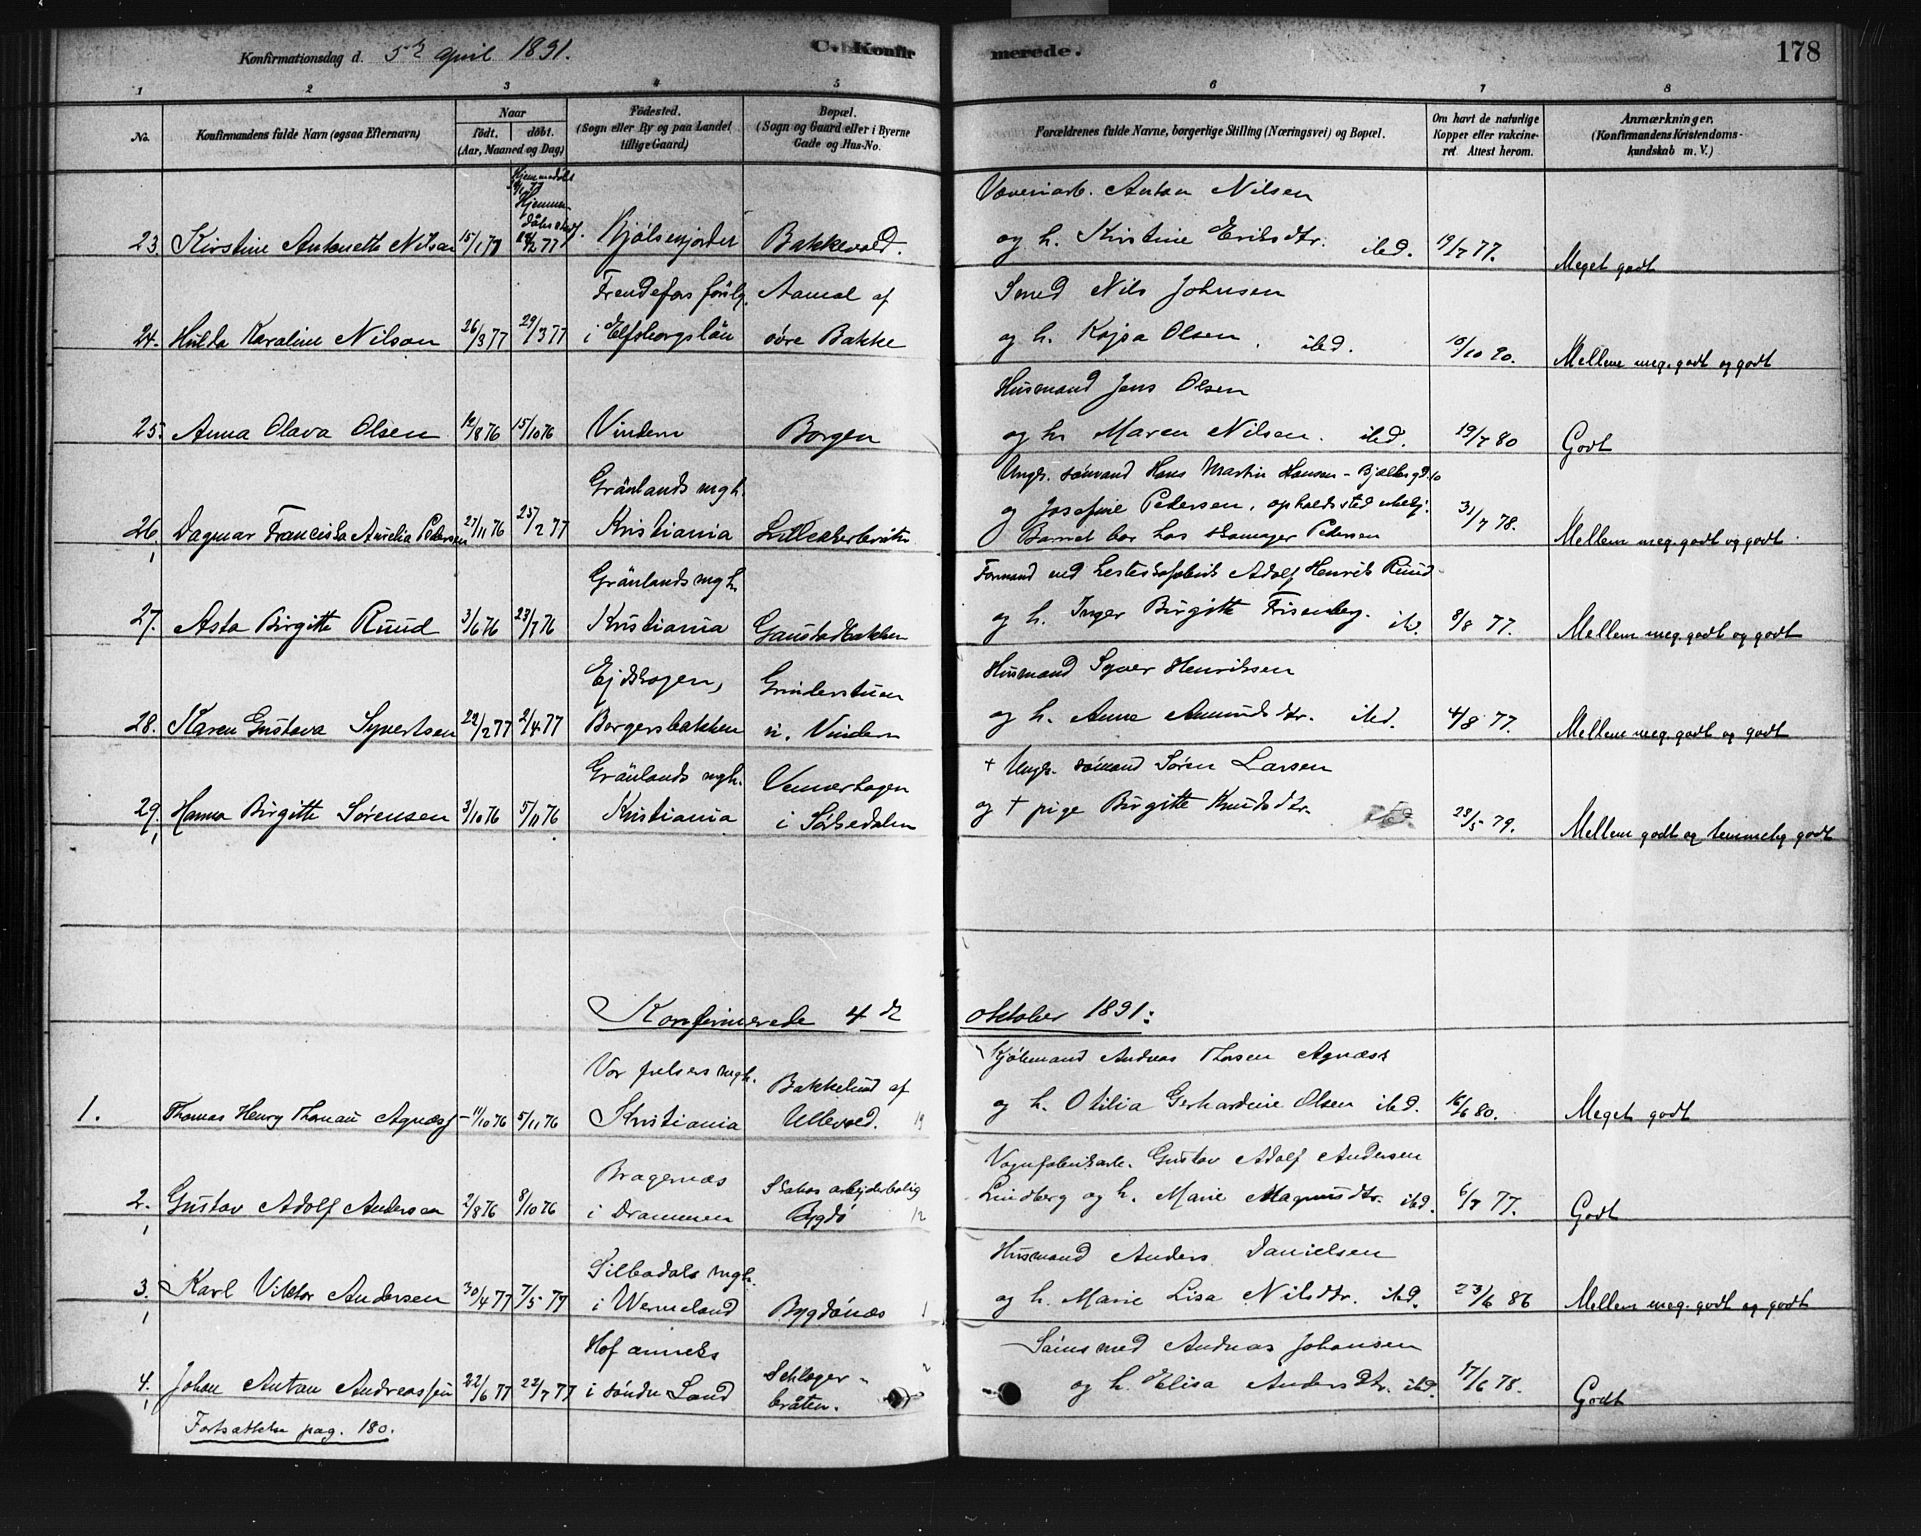 Konfirmationsdag d. 5te april 1891. C. Konfirmerede. 178
1 2 3 4 5 6 7 8
No. Konfirmandens fulde Navn (ogsaa Efternavn) Naar født. døbt. (Aar, Maaned og Dag) Fødested. (Sogn eller By og paa Landet tillige Gaard) Bopæl. (Sogn og Gaard eller i Byerne Gade og Hus-No. Forældrenes fulde Navne, borgerlige Stilling (Næringsvei) og Bopæl. Om havt de naturlige Kopper eller vakcineret Attest herom. Anmærkninger. (Konfirmandens Kristendomskundskab m. V.)
Væveriarb. Anton Nilsen
23. Kirstine Antonette Nilsen 15/1 77 Kjølsenjordet Bakkevold. og h. Kristine Eriksdtr. ibd. 19/7 77. Meget godt
Frendefors förslg. Aamal af Smed Nils Johnsen
24. Hulda Karoline Nilson 26/3 77 29/3 77 i Elfsborgslän øvre Bakke og h. Kajsa Olsen. ibd. 10/10 90. Mellem meg. godt og godt
Husmand Jens Olsen
25. Anna Olava Olsen 12/8 76 15/10 76 Vindern Borgen og h. Maren Nilsen. ibd. 19/7 80 Godt
Grønlands mgh. Ungk. sømand Hans Martin Hansen - Bjølsengd. 10
26. Dagmar Franciska Aurelia Pedersen 27/11 76 25/2 77 Kristiania Lilleakerbråten og Josefine Pedersen, opholdssted ubekj. 31/7 78. Mellem meg. godt og godt.
Barnet bor hos Skomager Pedersen
Grønlands mgh. Formand ved Lestesfabrik Adolf Henrik Ruud
27. Asta Birgitte Ruud 3/6 76 23/7 76 Kristiania Gaustadbakken og h. Inger Birgitte Frisenberg. ibd. 8/8 77. Mellem meg. godt og godt
Ejdskogen, Grinderstuen Husmand Syver Henriksen
28. Karen Gustava Syvertsen 22/2 77 2/4 77 Borgersbakken n. Vindern og h. Anne Amundsdtr. ibd. 4/8 77. Mellem meg. godt og godt
Grønlands mgh. Vennerhagen + Ungk. sømand Søren Larsen
29. Hanna Birgitte Sørensen 3/10 76 5/11 76 Kristiania i Sørkedalen og + pige Birgitte Knudsdtr. 23/5 79. Mellem godt og temmelig godt
Konfirmerede 4de oktober 1891:
Vor frelsers mgh. Bakkelund af Kjøbmand Andreas Thosen Agnæss
1. Thomas Henry Thonau Agnæss 11/10 76 5/11 76 Kristiania Ullevold. 19 og h. Otilia Gerhardine Olsen ibd. 16/6 80. Meget godt
Bragernæs Skabos arbejderbolig Vognfabrikarb. Gustav Adolf Andersen
2. Gustav Adolf Andersen 2/8 76 8/10 76 i Drammen Bygdø 12 Lindberg og h. Marie Magnusdtr. ibd. 6/7 77. Godt
Silbodals mgh. Husmand Anders Danielsen
3. Karl Viktor Andersen 30/4 77 7/5 77 i Wermeland Bygdønæs 1 og h. Marie Lisa Nilsdtr. ibd. 23/6 86 Mellem meg. godt og godt
Hof anneks Schlager- 2 Andreas Johansen
4. Johan Anton Andreassen 22/6 77 22/7 77 i søndre Land bråten. og h. Elisa Andersdtr. ibd. 17/6 78. Godt
Fortsættelse pag. 180.